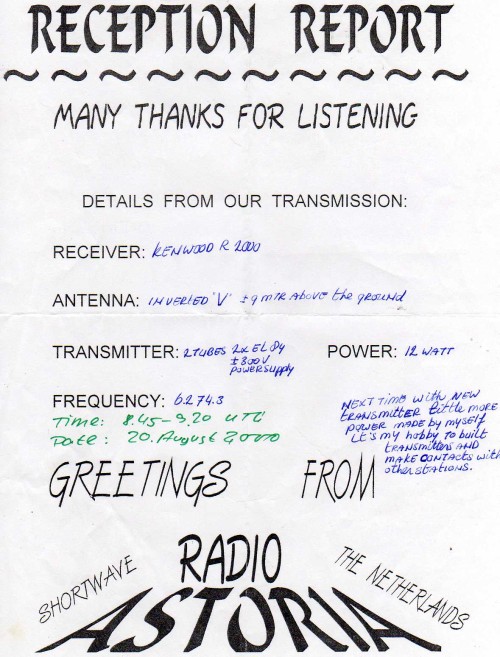 RECEPTION REPORT
~ ~ ~ ~ ~ ~ ~ ~ ~ ~ ~ ~ ~ ~
MANY THANKS FOR LISTENING
DETAILS FROM OUR TRANSMISSION:
RECEIVER: KENWOOD R 2000
ANTENNA: INVERTED "V" ± 9 MTR ABOVE the GROUND
TRANSMITTER: 2 TUBES 2x EL84
± 300V
POWERSUPPLY
POWER: 12 WATT
FREQUENCY: 6.274.3
Time: 8.45-9.20 UTC
Date: 20. August 2000
NEXT TIME with NEW
TRANSMITTER little MORE
POWER MADE by myself
it's my hobby to built
transmitters AND
MAKE CONTACTS with
other stations.
GREETINGS FROM
SHORTWAVE RADIO THE NETHERLANDS
ASTORIA